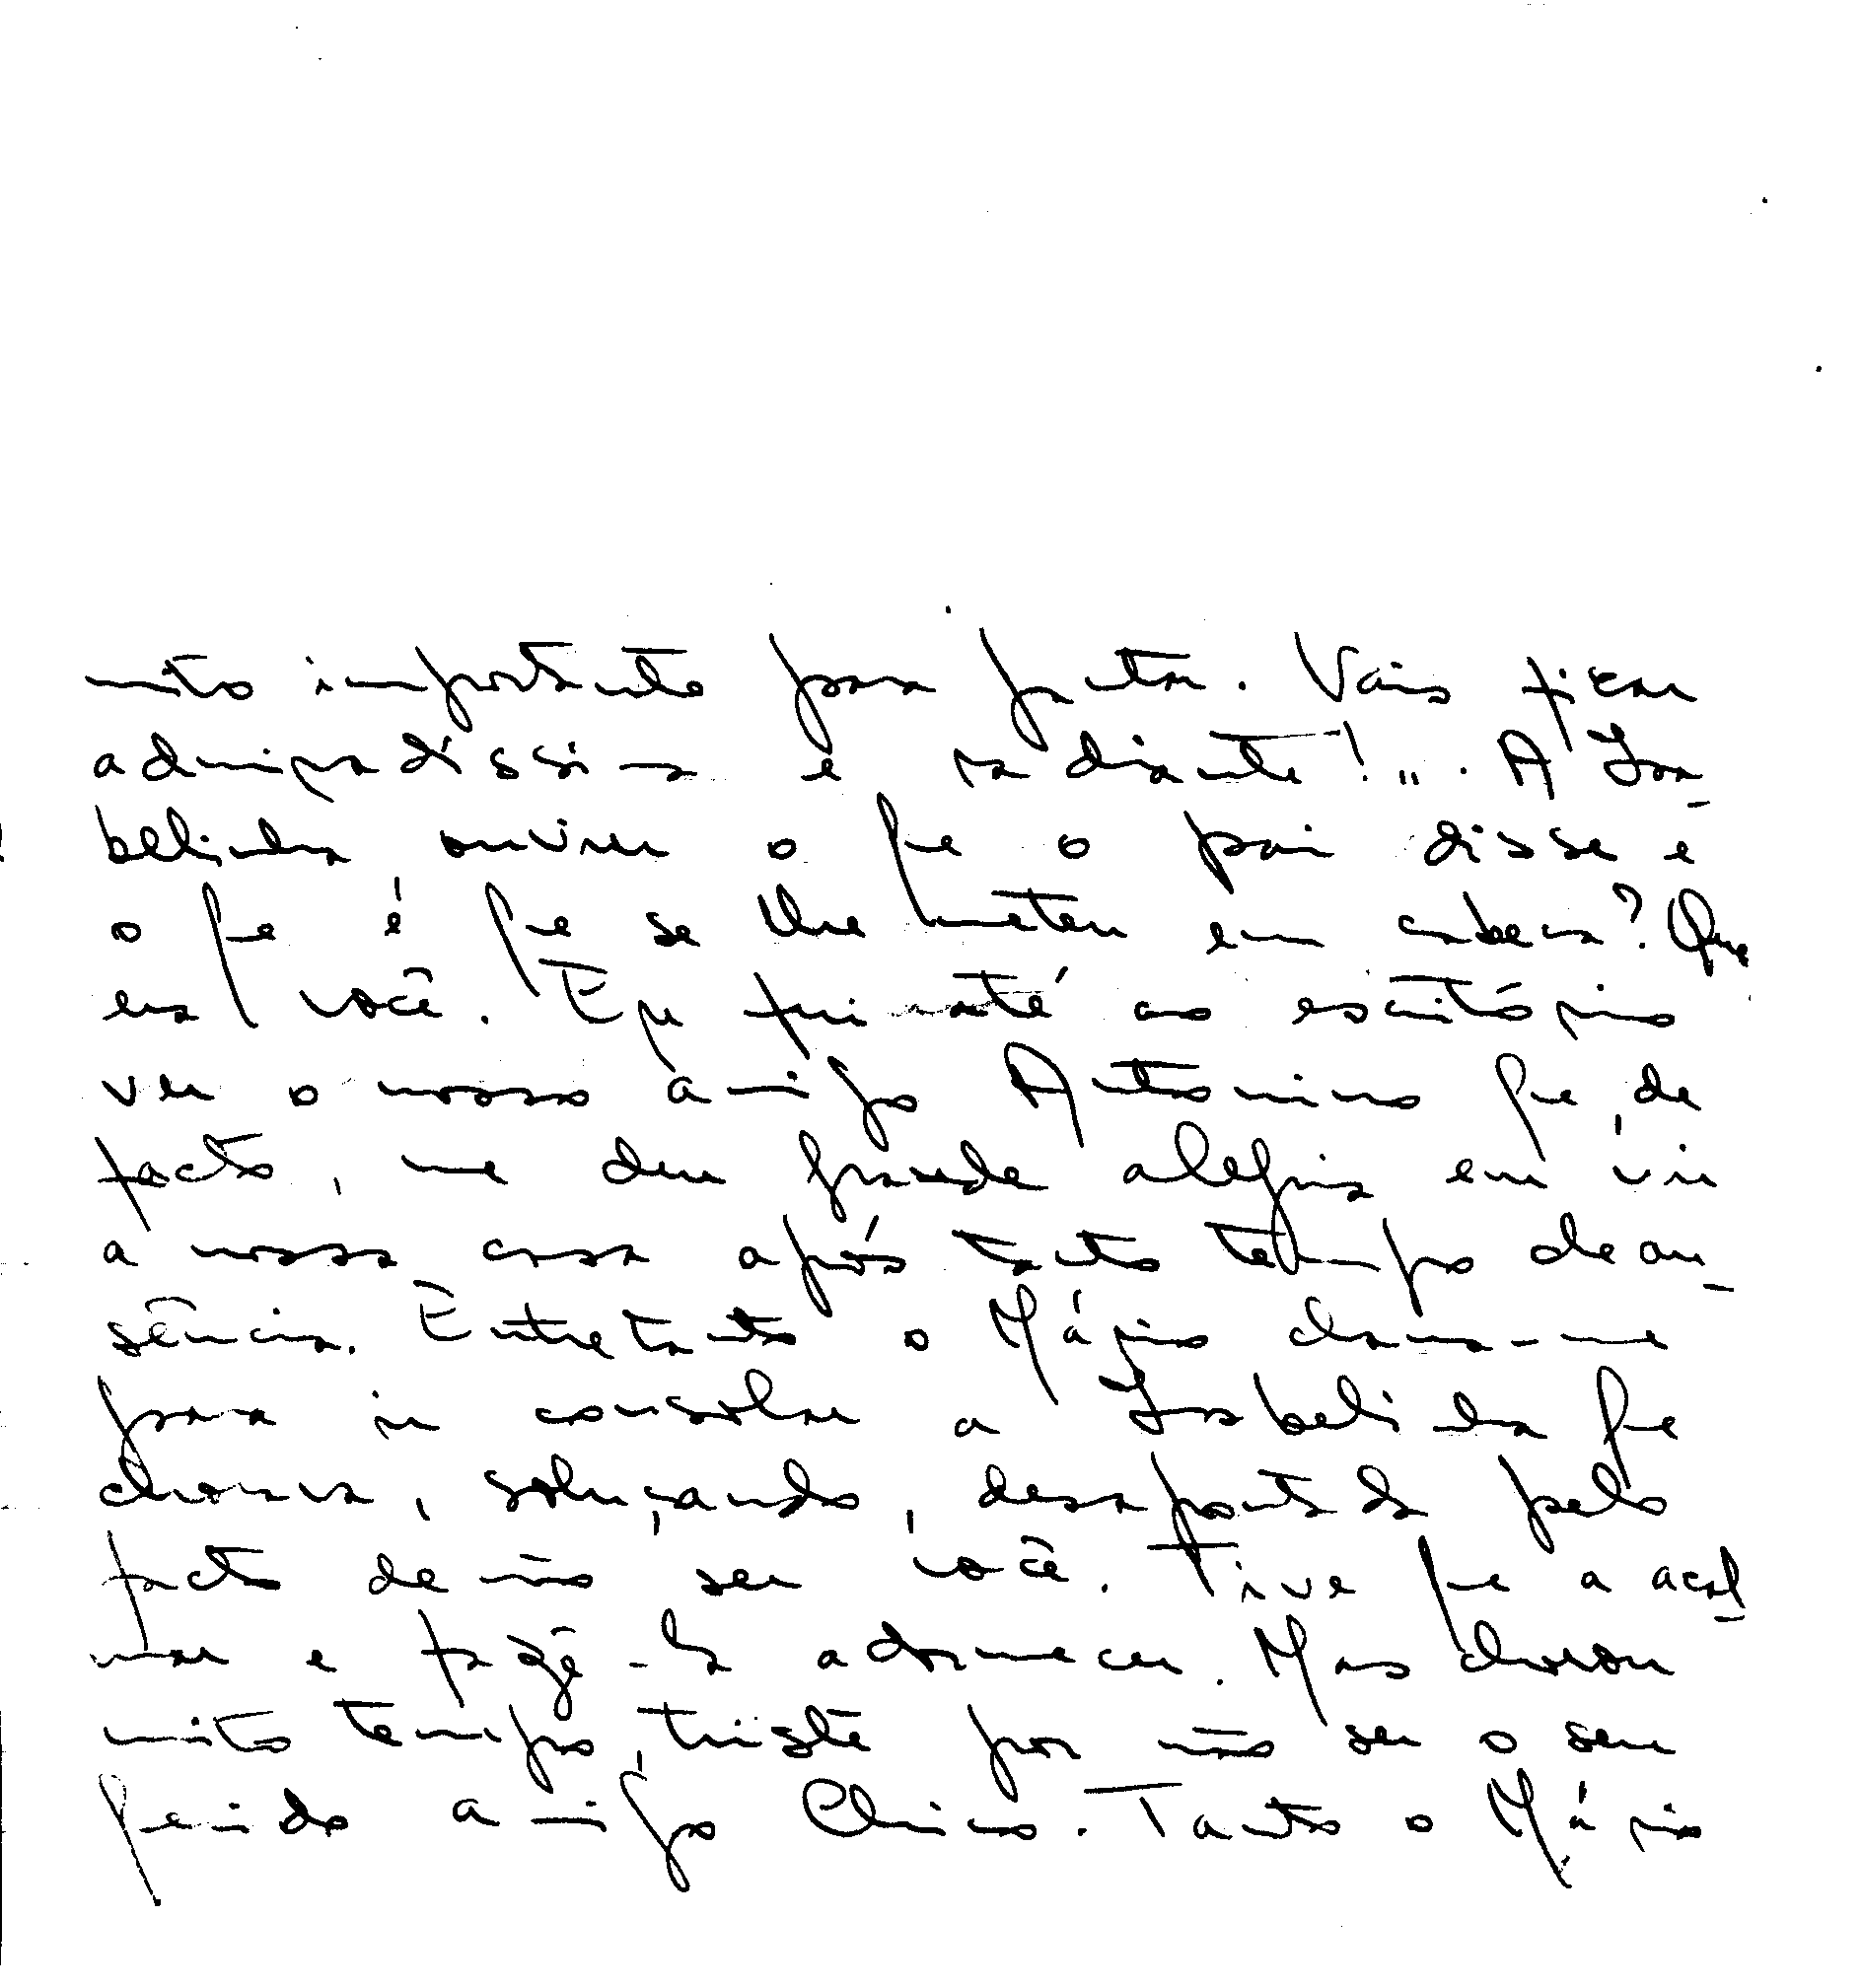 muito importante para jantar. Vais ficar
admiradíssima e radiante!". A Isa-
belinha ouviu o que o pai disse e
o que é que se lhe meteu em cabeça? Que
era você. Eu fui até ao escritório
ver o nosso amigo Antonino que, de
facto, me deu grande alegria em vir
a nossa casa após tanto tempo de au-
sência. Entretanto o Mário chama-me
para ir consolar a Isabelinha que
chorava, soluçando, desapontada pelo
facto de não ser você. Tive que a acal-
mar e fazê-la adormecer. Mas chorou
muito tempo, triste por não ser o seu
querido amigo Chico. Tanto o Mário